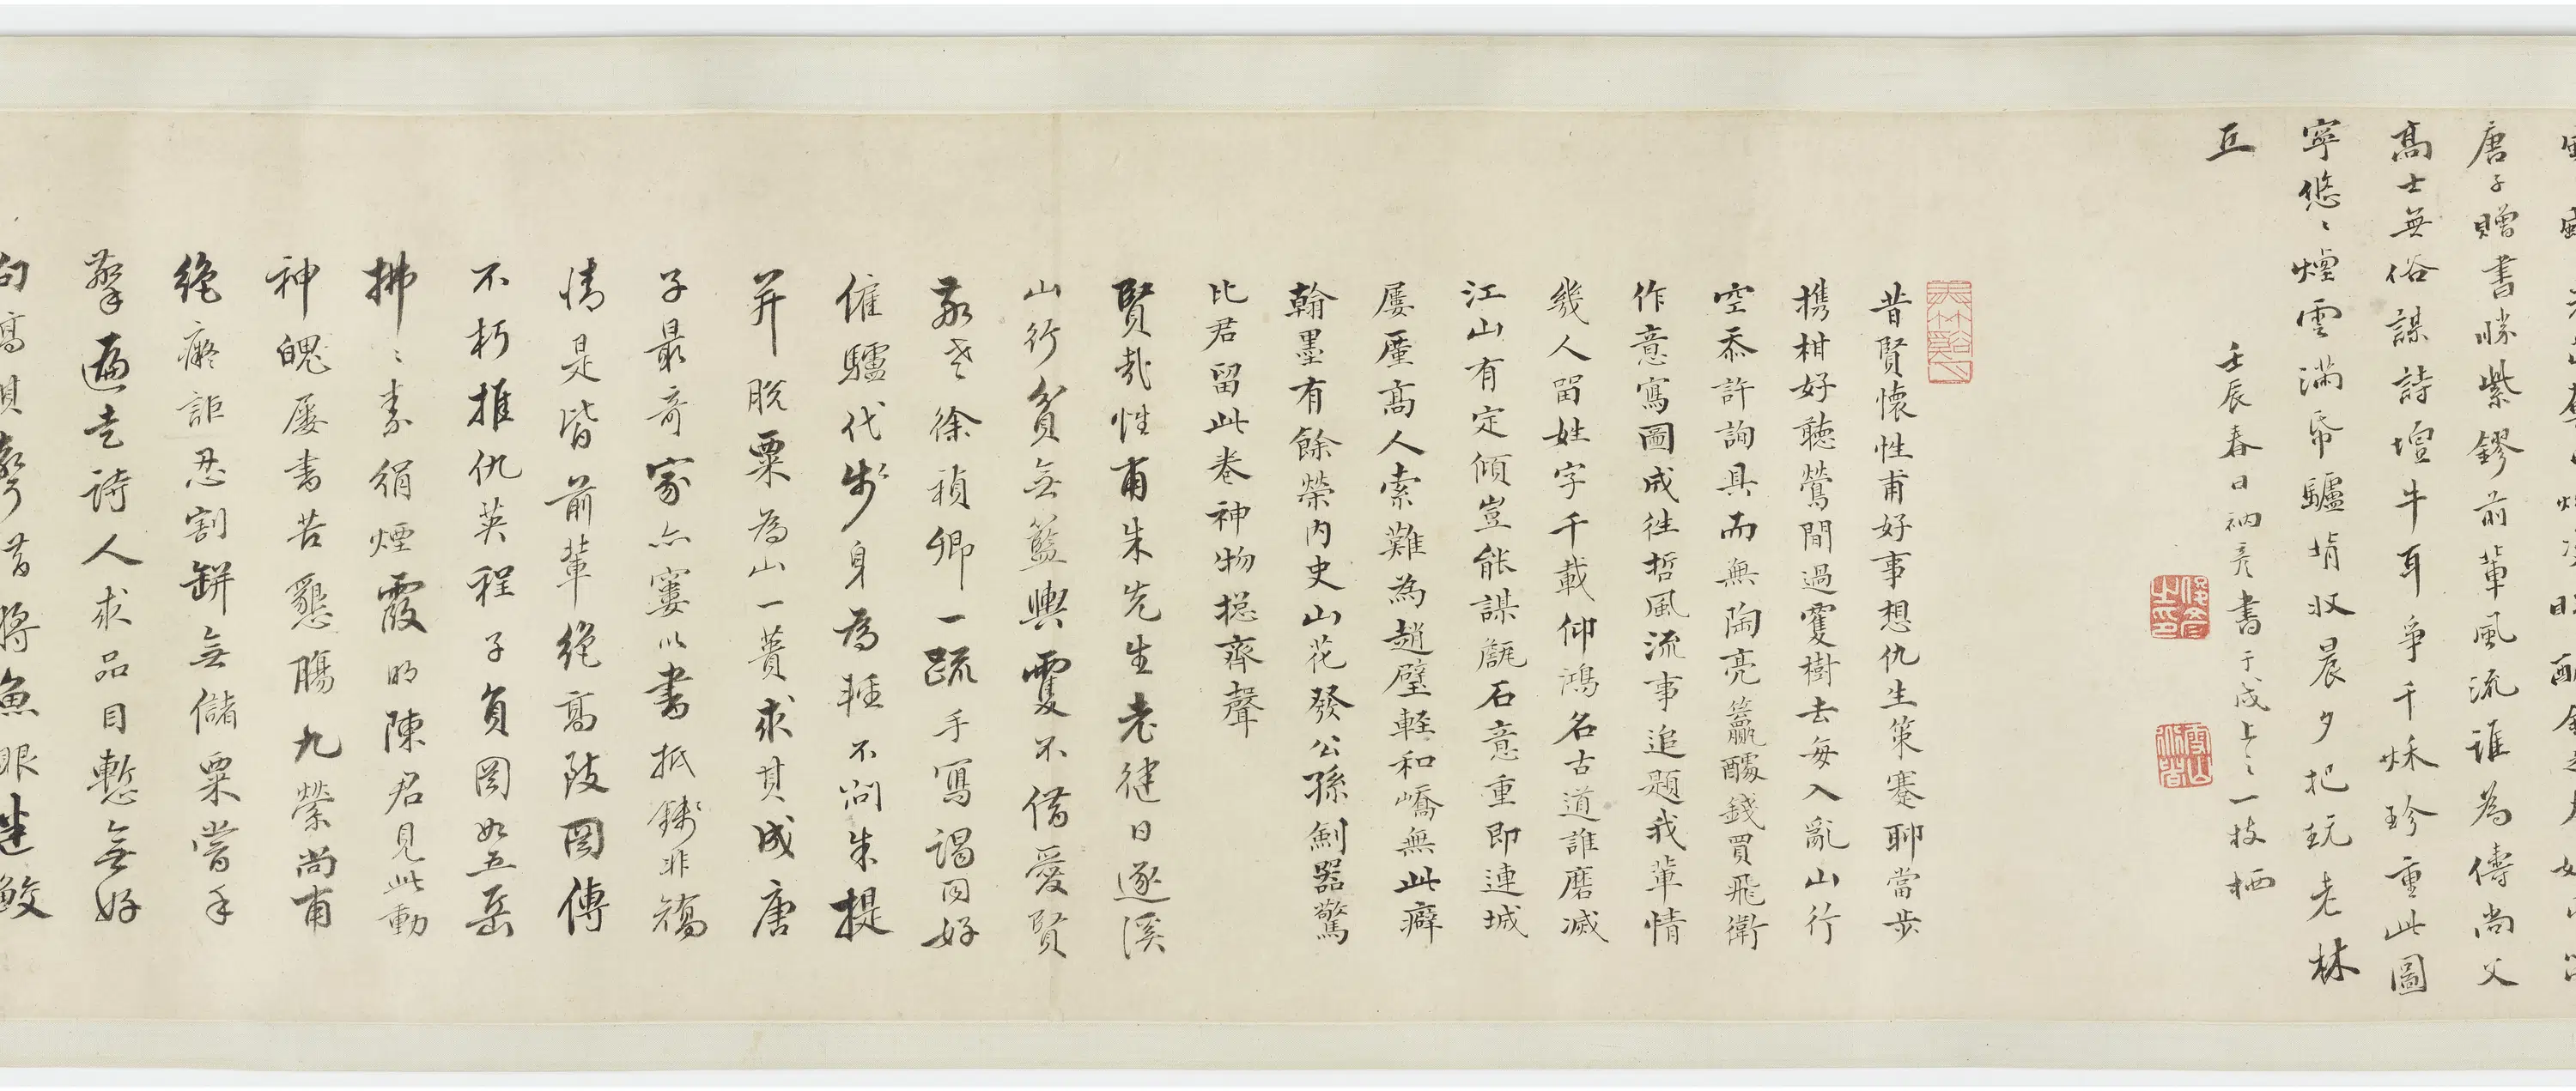 唐子贈書勝紫鏐前輩風流誰為傳尚父
高士無俗謀詩壇牛耳爭千秋珍重此圖
寧悠〻煙雲滿帋驢揹収晨夕把玩老林
丘
壬辰春日衲彥書于成上之一枝栖
昔賢懷性甫好事想仇生策蹇聊當步
携柑好聽鶯閒過霅樹去每入亂山行
空忝許詢具而無陶亮籯醵錢買飛衛
作意寫圖成徃哲風流事追題我輩情
幾人留姓字千載仰鴻名古道誰磨滅
江山有定傾豈能謀甔石意重即連城
屢厪高人索難為趙璧軽和嶠無此癖
翰墨有餘榮内史山花發公孫劍器驚
比君留此卷神物搃齊聲
賢哉性甫朱先生老健日逐溪
山行貧無籃輿霅不借愛賢
敬老徐禎卿一疏手寫謁同好
催驢代步身為輊不問朱提
并脫粟為山一蕢求其成唐
子最奇家亦窶以書抵錢非
情是皆前輩絶高致圖傳
不朽推仇英程子負圖如五岳
拂〻素絹煙霞明陳君見此動
神魄屢書苦懇腸九縈尚甫
絶癡詎忍割缾無儲粟當手
擎遍走詩人求品目慙無好
句高唄聲昔將魚眼迷鮫